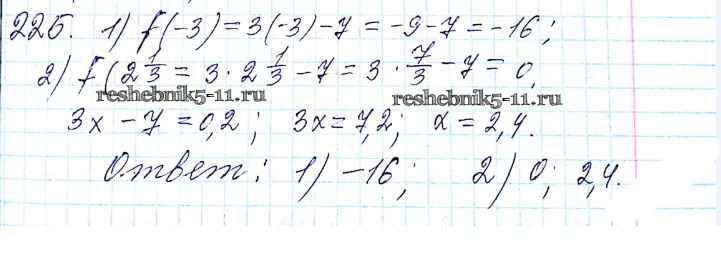 225. 1) f(-3) = 3(-3)-7 = -9-7 = -16;
2) f(2 1/3 = 3 · 2 1/3 - 7 = 3 · 7/3 - 7 = 0,
reshebnik5-11.ru reshebnik5-11.ru
3x - 7 = 0,2; 3x = 7,2; x = 2,4.
Ответ: 1) -16; 2) 0; 2,4.